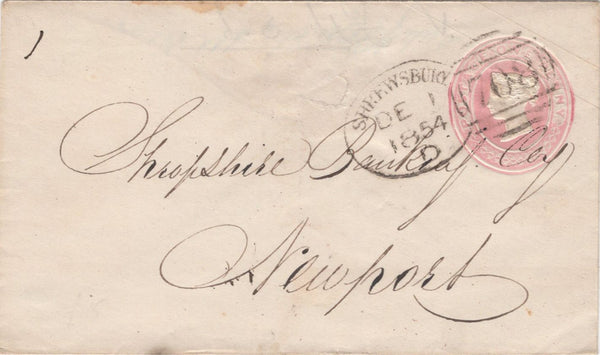 SHREWSBURY
DE 1
1854
D
708
Shropshire Banking Coy
Newport